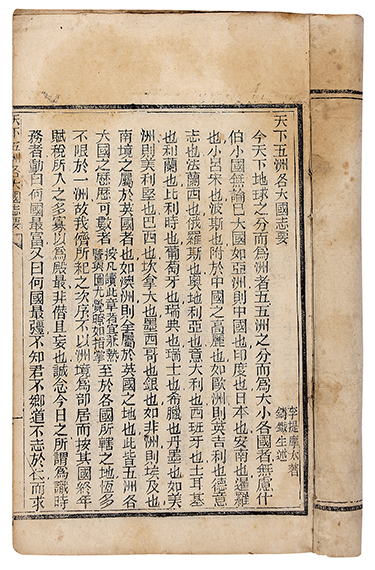 天下五洲各大國志要
李提摩太著
鑄鐵生述
今天下地球之分而爲洲者五五洲之分而爲大小各國者無慮什
伯小國無論已大國如亞洲則中國也印度也日本也安南也暹羅
也小呂宋也波斯也附於中國之高麗也如歐洲則英吉利也德意
志也法蘭西也俄羅斯也奧地利亞也意大利也西班牙也土耳基
也和蘭也比利時也葡萄牙也瑞典也瑞士也希臘也丹墨也如美
洲則美利堅也巴西也坎拿大也墨西哥也銀也如非洲則埃及也
南境之屬於英國者也如澳洲則全屬於英國之地也此皆五洲各
大國之歷歷可數者按凡讀此章者宜兼熟覽輿圖尤覺瞭如指掌至於各國所轄之地恆多
不限於一洲故我儕所紀之次序不以洲境爲部居而按其國終年
賦稅所入之多寡以爲殿最非僭且妄也誠念今日之所謂爲識時
務者動曰何國最富又曰何國最強不知君不鄉道不志於仁而求
天下五洲各大國志要